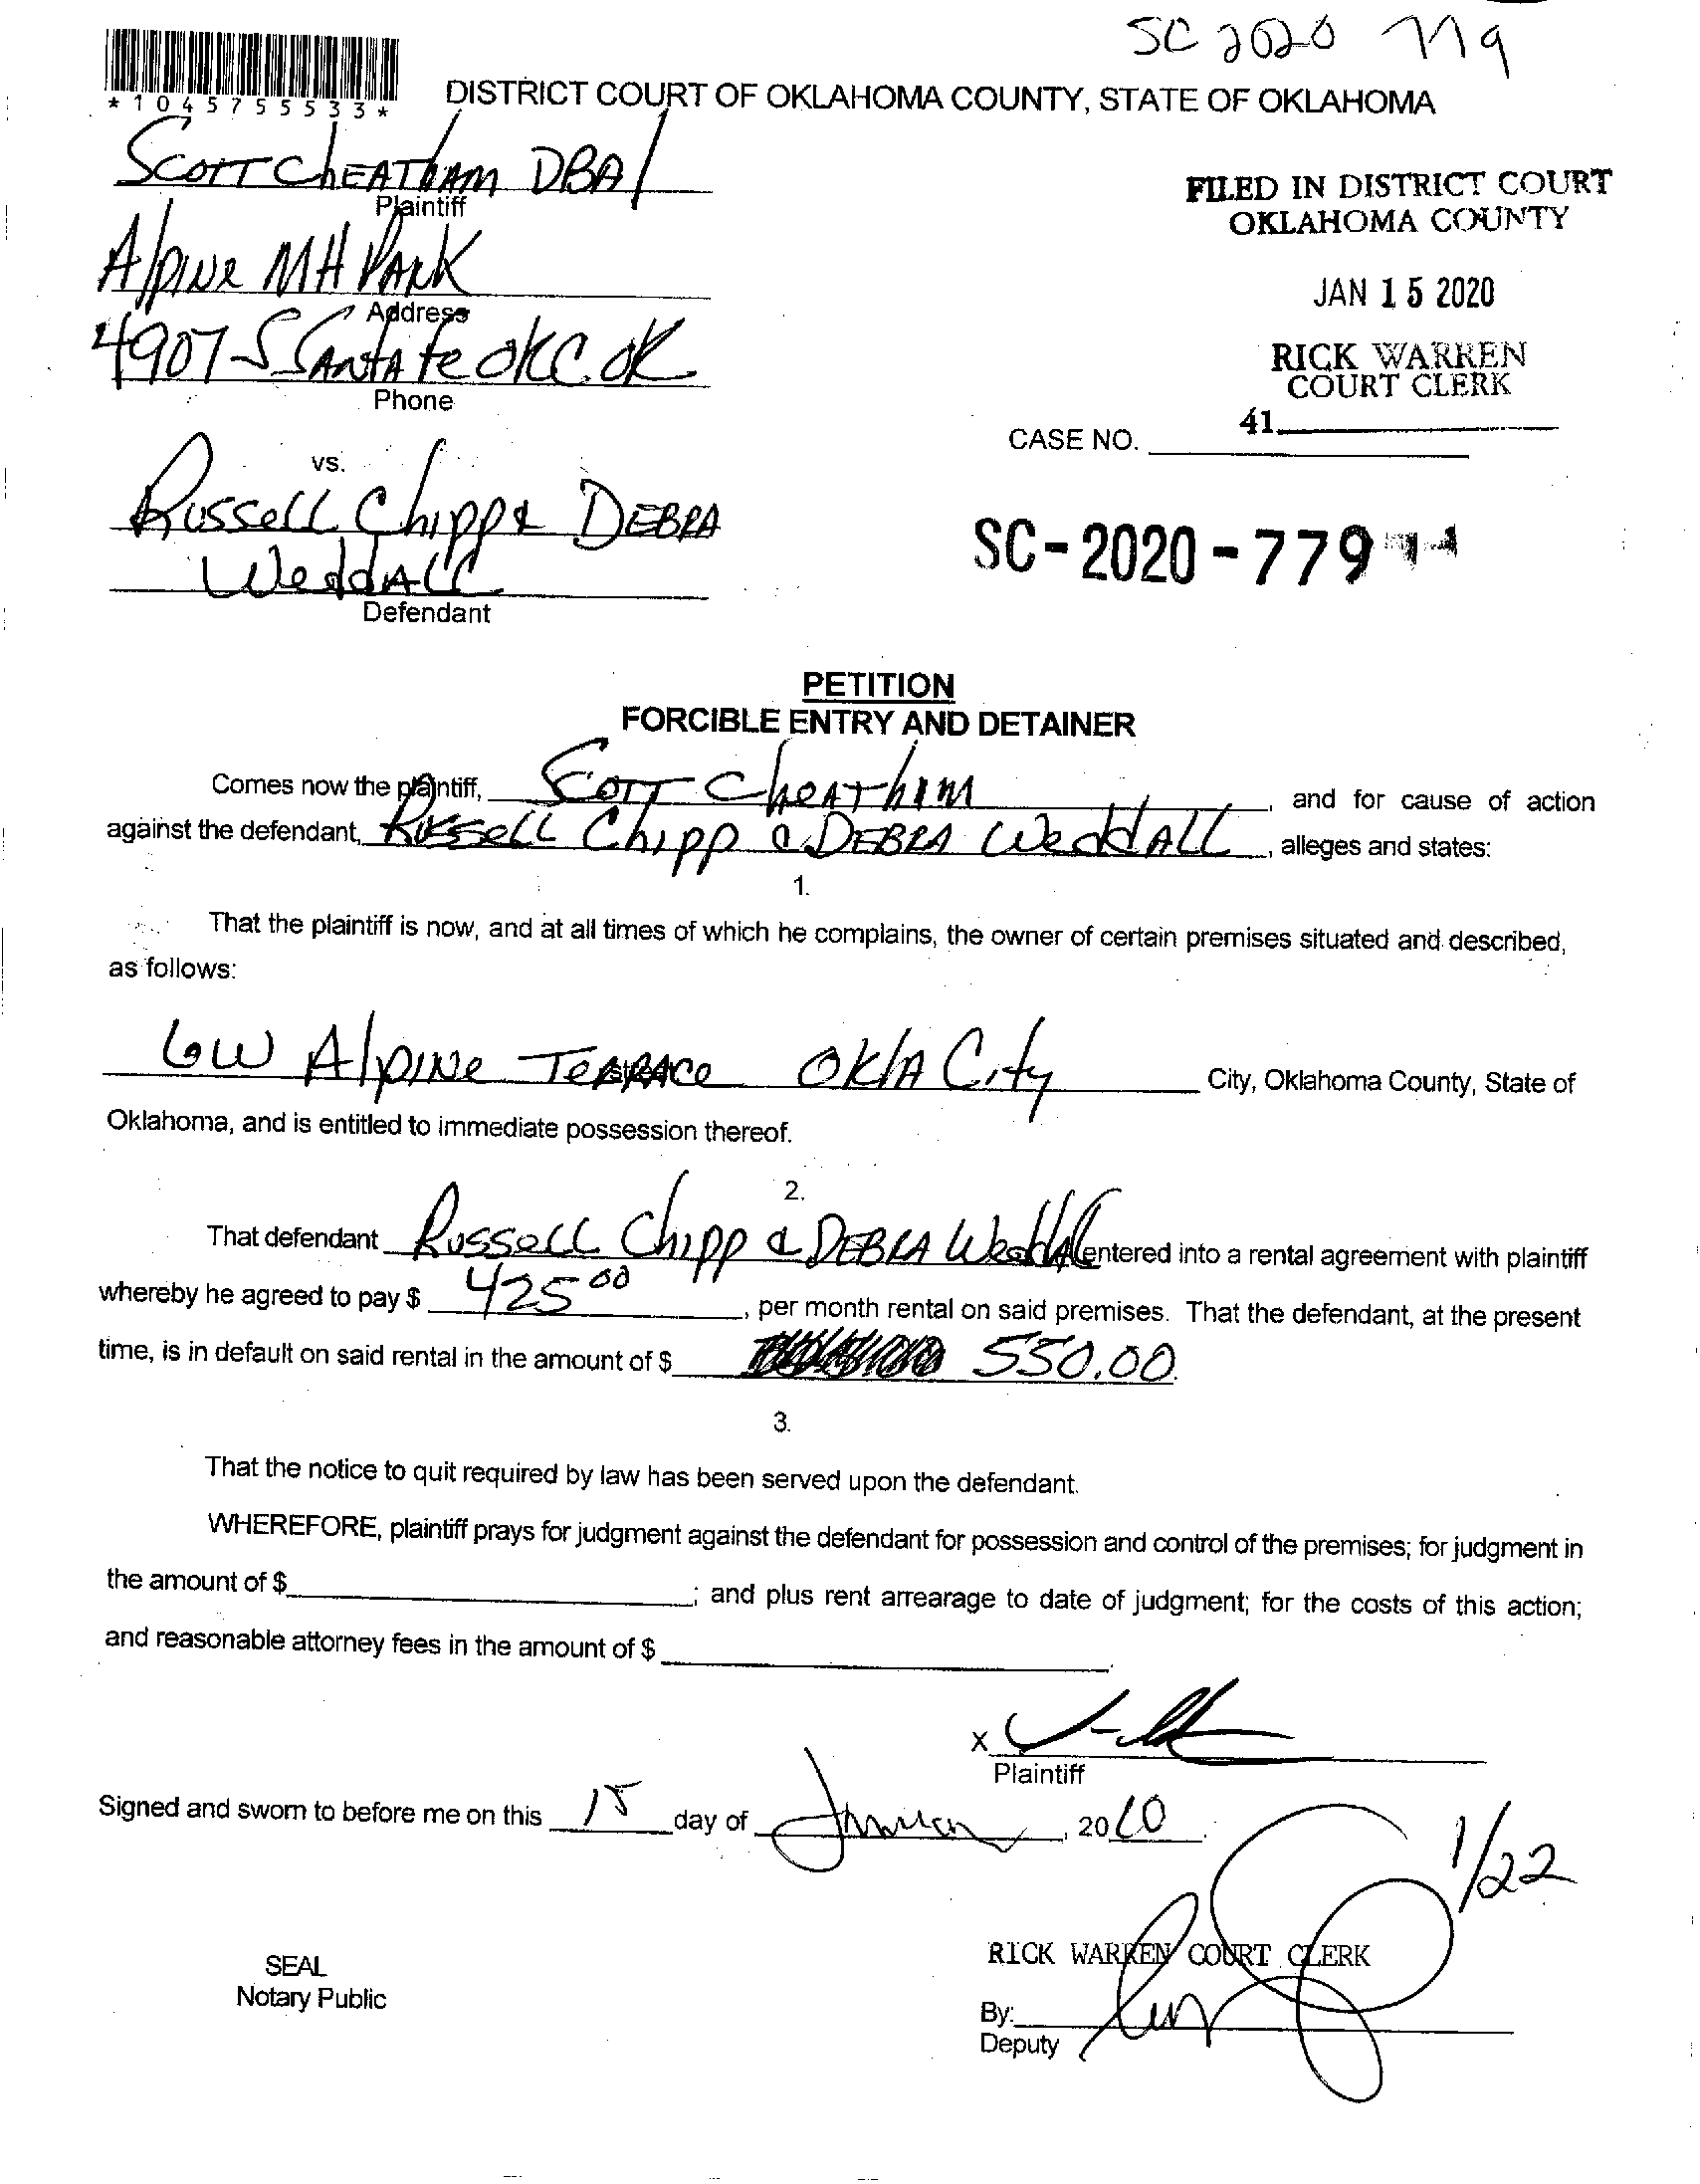 SC 2020 779
*1045755533*
DISTRICT COURT OF OKLAHOMA COUNTY, STATE OF OKLAHOMA
SCOTT CHEATHAM DBA/
Plaintiff
FILED IN DISTRICT COURT
OKLAHOMA COUNTY
Alpine MH Park
Address
JAN 15 2020
4907 S SANTA Fe OKC. OK
Phone
RICK WARREN
COURT CLERK
41
CASE NO.
vs.
Russell Chipp & DEBRA
WeddALL
Defendant
SC-2020-779
PETITION
FORCIBLE ENTRY AND DETAINER
Comes now the plaintiff, SCOTT CheAThAM, and for cause of action
against the defendant, Russell Chipp & DEBRA WeddALL, alleges and states:
1.
That the plaintiff is now, and at all times of which he complains, the owner of certain premises situated and described,
as follows:
6W Alpine TeRRACe OklA City City, Oklahoma County, State of
Oklahoma, and is entitled to immediate possession thereof.
2.
That defendant Russell Chipp & DEBRA WeddALL entered into a rental agreement with plaintiff
whereby he agreed to pay $ 425 00, per month rental on said premises. That the defendant, at the present
time, is in default on said rental in the amount of $ 550.00.
3.
That the notice to quit required by law has been served upon the defendant.
WHEREFORE, plaintiff prays for judgment against the defendant for possession and control of the premises; for judgment in
the amount of $ ; and plus rent arrearage to date of judgment; for the costs of this action;
and reasonable attorney fees in the amount of $ .
X
Plaintiff
Signed and sworn to before me on this 15 day of January, 2020.
1/22
RICK WARREN COURT CLERK
SEAL
Notary Public
By:
Deputy